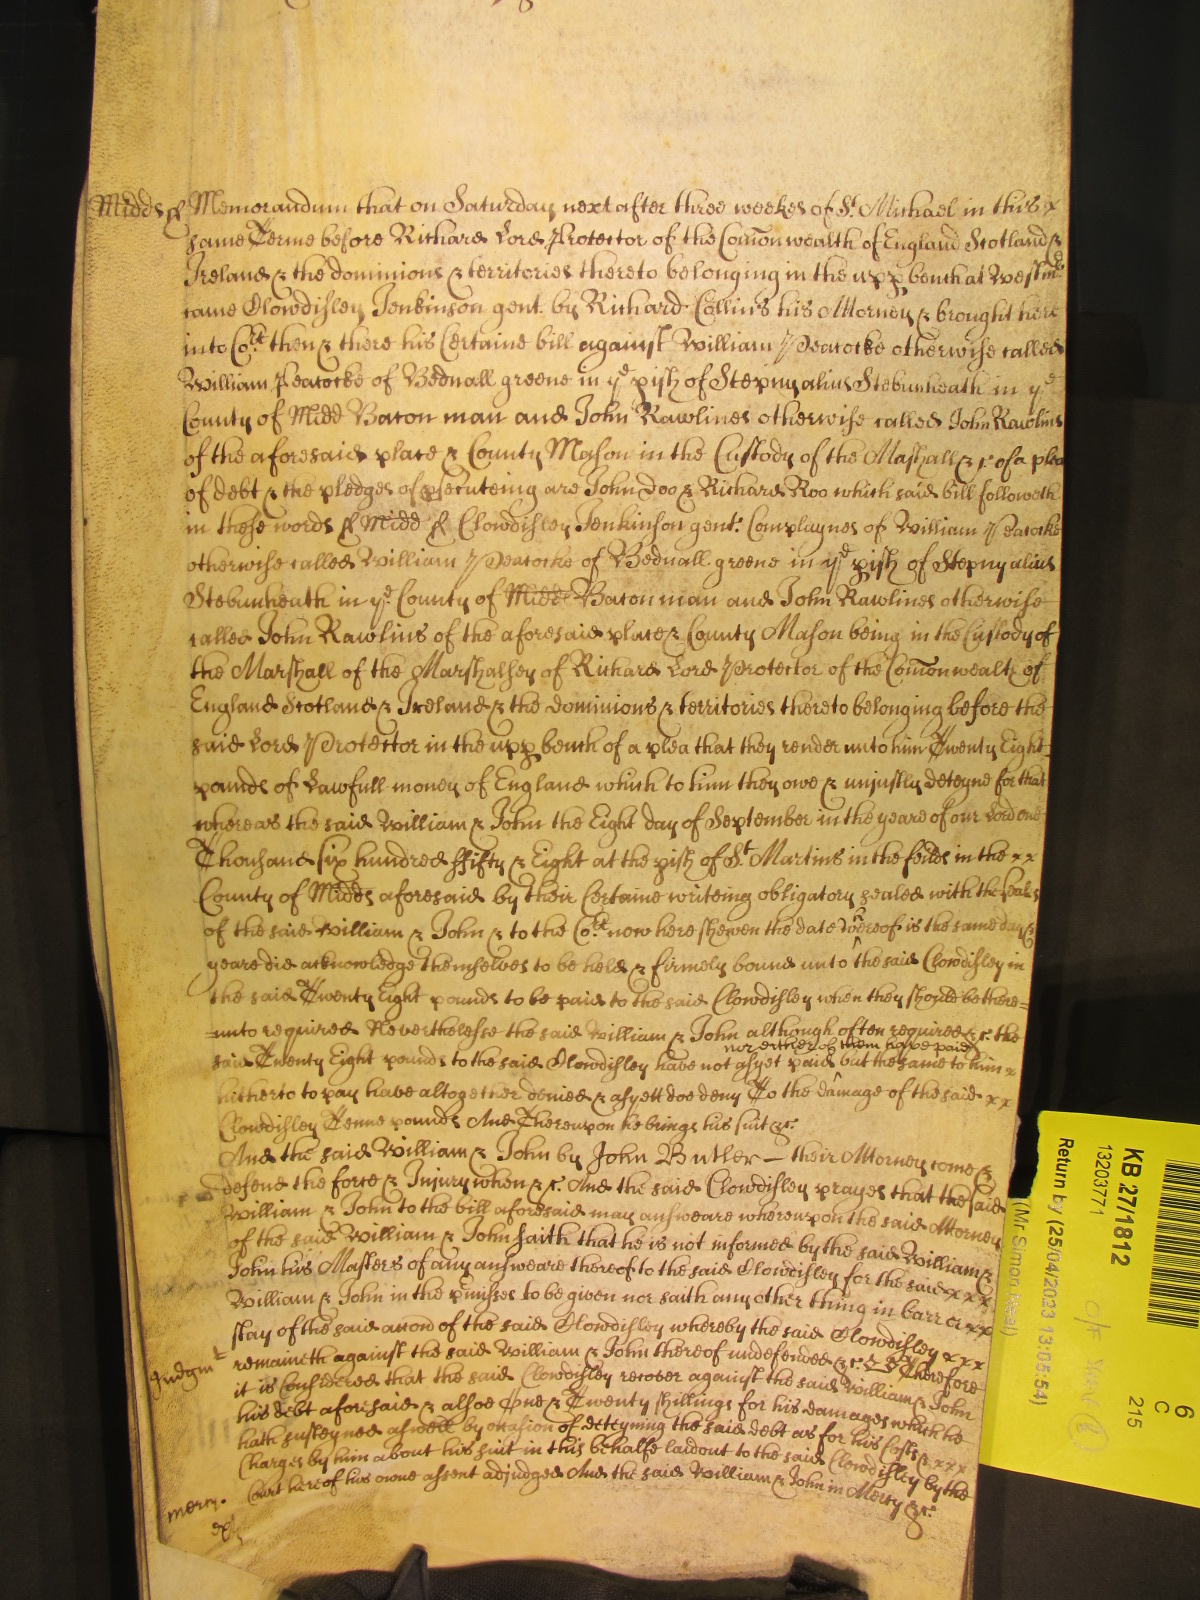 Midds ss Memorandum that on Saturday next after three weekes of St. Michael in this x
same Terme before Richard Lord Protector of the Comonwealth of England Scotland &
Ireland & the dominions & territories thereto belonging in the upp bench at Westmr
came Clowdisley Jenkinson gent. by Richard Collins his Attorney & brought here
into Cort then & there his Certaine bill against William Peacocke otherwise called
William Peacocke of Bednall greene in ye pish of Stepny alius Stebunheath in ye
County of Midd Bacon man and John Rawlines otherwise called John Rawlins
of the aforesaid place & County Mason in the Custody of the Mashall &c. of a plea
of debt & the pledges of psecuteing are John Doo & Richard Roo which said bill followeth
in these words ss Midd ss Clowdisley Jenkinson gent. Complaynes of William Peacocke
otherwise called William Peacocke of Bednall greene in ye pish of Stepny alius
Stebunheath in ye County of Midd Bacon man and John Rawlines otherwise
called John Rawlins of the aforesaid place & County Mason being in the Custody of
the Marshall of the Marshalsey of Richard Lord Protector of the Comonwealth of
England Scotland & Ireland & the dominions & territories thereto belonging before the
said Lord Protector in the upp bench of a plea that they render unto him Twenty Eight
pounds of Lawfull money of England which to him they owe & unjustly deteyne for that
whereas the said William & John the Eight day of September in the yeare of our Lord one
Thousand six hundred ffifty & Eight at the pish of St Martins in the feilds in the x x
County of Midds aforesaid by their Certaine writeing obligatory sealed with the seales
of the said William & John & to the Cort now here shewen the date whereof is the same day &
yeare did acknowledge themselves to be held & firmely bound unto the said Clowdisley in
the said Twenty Eight pounds to be paid to the said Clowdisley when they should be there=
=unto required Neverthelesse the said William & John although often required &c. the
nor either of them have paid
said Twenty Eight pounds to the said Clowdisley have not as yet paid but the same to him x
hitherto to pay have altogether denied & as yett doe deny To the damage of the said x x
Clowdisley Tenne pounds And Thereupon he brings his suit &c.
And the said William & John by John Butler — their Attorney come &
defend the force & Injury when &c. And the said Clowdisley prayes that the said
William & John to the bill aforesaid may answeare whereupon the said Attorney
of the said William & John saith that he is not informed by the said William &
John his Masters of any answeare thereof to the said Clowdisley for the said x x x
William & John in the pmisses to be given nor saith any other thing in barr or x x
stay of the said accon of the said Clowdisley whereby the said Clowdisley x x x
remaineth against the said William & John thereof undefended &c. Therefore
Judgmt it is Considered that the said Clowdisley recover against the said William & John
his debt aforesaid & alsoe One & Twenty shillings for his damages which he
hath susteyned aswell by occasion of deteyning the said debt as for his Costs & x x x
Charges by him about his suit in this behalfe laid out to the said Clowdisley by the
Court here of his owne assent adjudged And the said William & John in Mercy &c.
mercy.
KB 27/1812
13203771
Return by (25/04/2023 13:05:54)
6
C
215